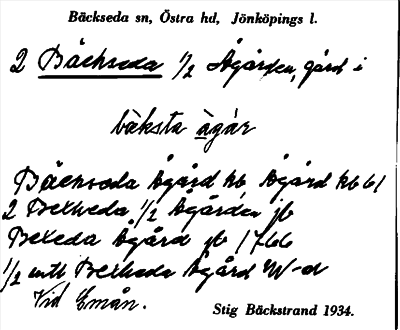 Bäckseda sn, Östra hd, Jönköpings l.
2 Bäckseda 1/2 Ågården, gård i
bæksta àgár
Bäckseda Ågård hb, Ågård kb 61
2 Bexheda 1/2 Ågården jb
Bexeda Ågård jb 1766
1/2 mtl Bexheda Ågård W-d
Vid Emån.
Stig Bäckstrand 1934.